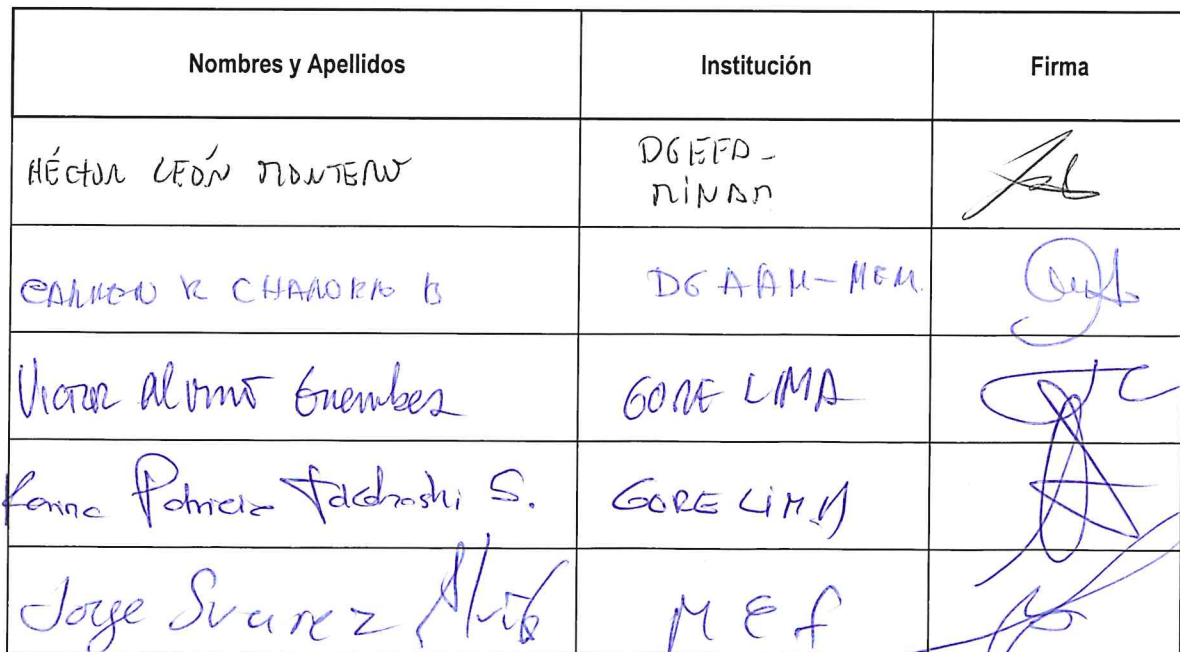 Nombres y Apellidos Institución Firma
HÉCTOR LEÓN MONTERO DGEFA-
MINAM
CARMEN R CHAMORRO B DGAAM-MEM.
Victor Guembes GORE LIMA
Patricia Takahashi S. GORE LIMA
Jorge Suarez MEF